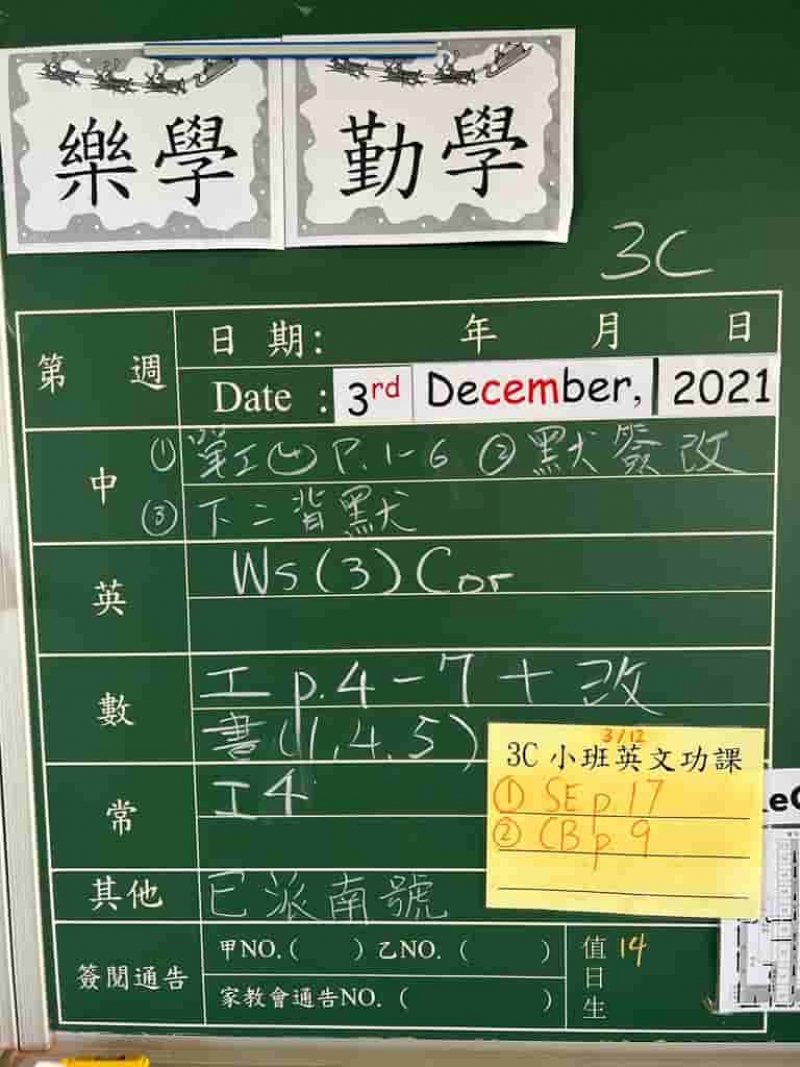 樂學 勤學
3C
第 週 日期： 年 月 日
Date : 3rd December, 2021
中 ① 單工(七) P.1-6 ② 默簽改
③ 下二背默
英 Ws (3) Cor
數 工 p.4-7 + 改
書(1,4,5)
常 工4
其他 已派南號
簽閱通告 甲NO.( ) 乙NO.( )
家教會通告NO.( )
值日生 14
3/12
3C 小班英文功課
① SE p.17
② CB p.9